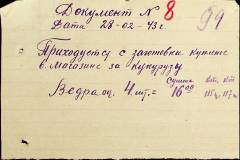 Документ № 8 99
Дата 28-02-43 г.
Приходуется с заготовки купленые
в магазине за кукурузу
Сумма
Ведра оц. 4 шт. = 16 00